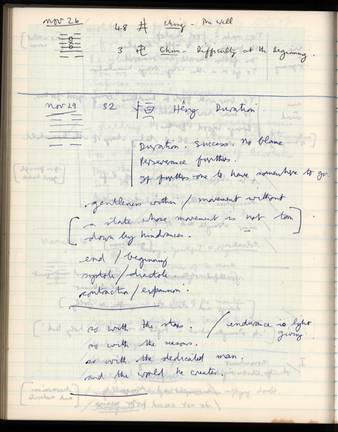 Nov 26 48 井 Ching - The Well
3 屯 Chun - Difficulty at the beginning.
Nov 29 32 恒 Hêng Duration
Duration. Success. No blame
Perseverance furthers.
It furthers one to have somewhere to go.
gentleness within / movement without
a state whose movement is not torn
down by hindrances.
end / beginning
systole / diastole.
contraction / expansion.
so with the stars. / endurance is light
giving
so with the seasons.
so with the dedicated man.
and the world he creates.